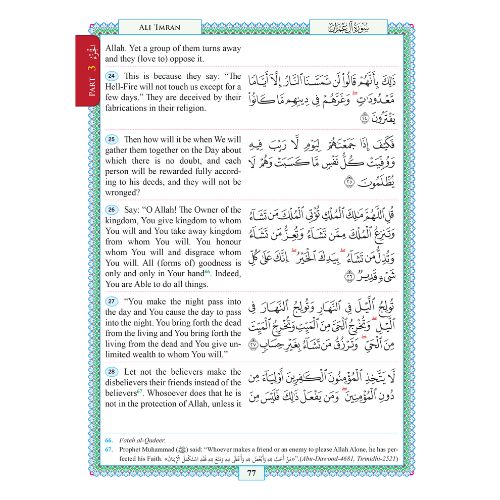 ALI 'IMRAN
سُورَةُ آلِ عِمْرَان
PART 3
الجزء ٣
Allah. Yet a group of them turns away
and they (love to) oppose it.
24 This is because they say: "The
Hell-Fire will not touch us except for a
few days." They are deceived by their
fabrications in their religion.
ذَٰلِكَ بِأَنَّهُمْ قَالُوا لَن تَمَسَّنَا النَّارُ إِلَّا أَيَّامًا
مَّعْدُودَاتٍ ۖ وَغَرَّهُمْ فِي دِينِهِم مَّا كَانُوا
يَفْتَرُونَ ٢٤
25 Then how will it be when We will
gather them together on the Day about
which there is no doubt, and each
person will be rewarded fully accord-
ing to his deeds, and they will not be
wronged?
فَكَيْفَ إِذَا جَمَعْنَاهُمْ لِيَوْمٍ لَّا رَيْبَ فِيهِ
وَوُفِّيَتْ كُلُّ نَفْسٍ مَّا كَسَبَتْ وَهُمْ لَا
يُظْلَمُونَ ٢٥
26 Say: "O Allah! The Owner of the
kingdom, You give kingdom to whom
You will and You take away kingdom
from whom You will. You honour
whom You will and disgrace whom
You will. All (forms of) goodness is
only and only in Your hand66. Indeed,
You are Able to do all things.
قُلِ اللَّهُمَّ مَالِكَ الْمُلْكِ تُؤْتِي الْمُلْكَ مَن تَشَاءُ
وَتَنزِعُ الْمُلْكَ مِمَّن تَشَاءُ وَتُعِزُّ مَن تَشَاءُ
وَتُذِلُّ مَن تَشَاءُ ۖ بِيَدِكَ الْخَيْرُ ۖ إِنَّكَ عَلَىٰ كُلِّ
شَيْءٍ قَدِيرٌ ٢٦
27 "You make the night pass into
the day and You cause the day to pass
into the night. You bring forth the dead
from the living and You bring forth the
living from the dead and You give un-
limited wealth to whom You will."
تُولِجُ اللَّيْلَ فِي النَّهَارِ وَتُولِجُ النَّهَارَ فِي
اللَّيْلِ ۖ وَتُخْرِجُ الْحَيَّ مِنَ الْمَيِّتِ وَتُخْرِجُ الْمَيِّتَ
مِنَ الْحَيِّ ۖ وَتَرْزُقُ مَن تَشَاءُ بِغَيْرِ حِسَابٍ ٢٧
28 Let not the believers make the
disbelievers their friends instead of the
believers67. Whosoever does that he is
not in the protection of Allah, unless it
لَّا يَتَّخِذِ الْمُؤْمِنُونَ الْكَافِرِينَ أَوْلِيَاءَ مِن
دُونِ الْمُؤْمِنِينَ ۖ وَمَن يَفْعَلْ ذَٰلِكَ فَلَيْسَ مِنَ
66. Fateh al-Qadeer.
67. Prophet Muhammad (ﷺ) said: "Whoever makes a friend or an enemy to please Allah Alone, he has per-
fected his Faith. «مَنْ أَحَبَّ لِلَّهِ وَأَبْغَضَ لِلَّهِ وَأَعْطَى لِلَّهِ وَمَنَعَ لِلَّهِ فَقَدِ اسْتَكْمَلَ الْإِيمَانَ»".(Abu-Dawood-4681, Tirmidhi-2521)
77